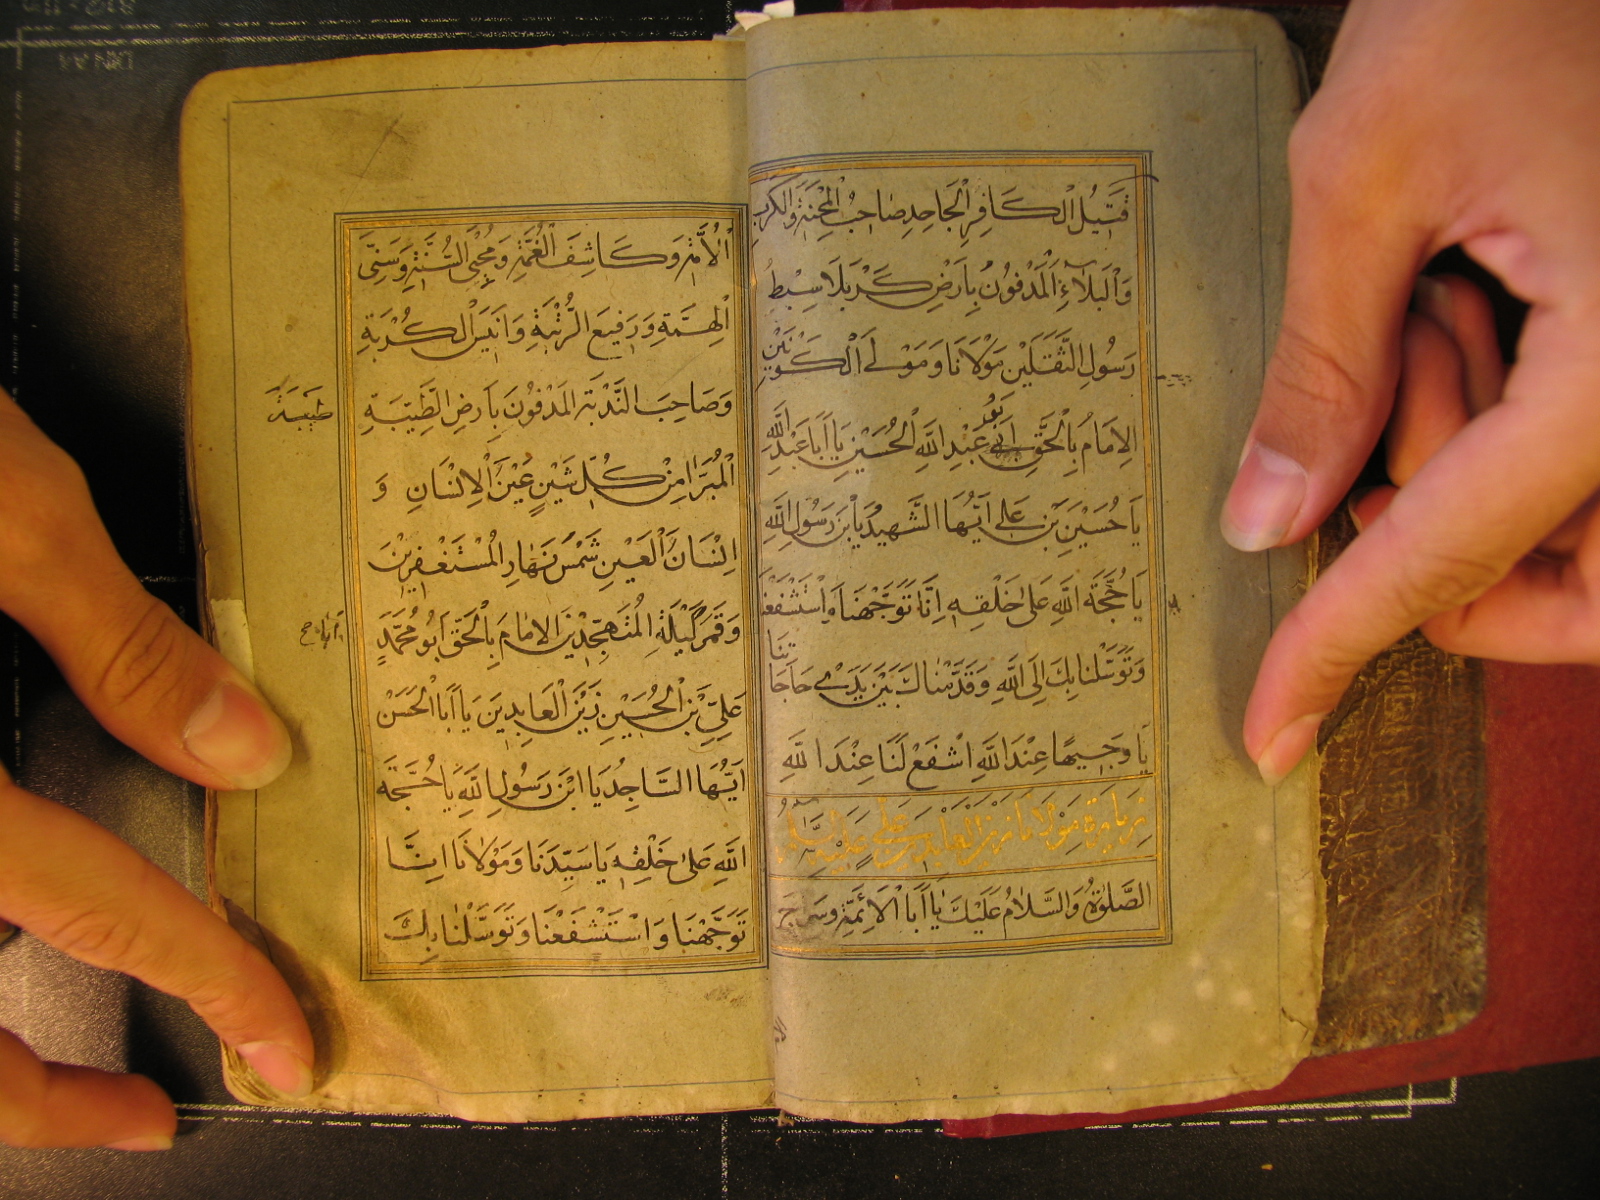 قَتِيلُ الْكَافِرِ الْجَاحِدِ صَاحِبُ الْمِحْنَةِ وَالْكَرْبِ
وَالْبَلَاءِ الْمَدْفُونُ بِاَرْضِ كَرْبَلَا سِبْطِ
رَسُولِ الثَّقَلَيْنِ مَوْلَانَا وَمَوْلَى الْكَوْنَيْنِ
الاِمَامُ بِالْحَقِّ اَبُو عَبْدِ اللهِ الْحُسَيْنِ يَا اَبَا عَبْدِ اللهِ
يَا حُسَيْنِ بْنِ عَلِي اَيُّهَا الشَّهِيدُ يَا بْنَ رَسُولِ اللهِ
يَا حُجَّةَ اللهِ عَلَى خَلْقِهِ اِنَّا تَوَجَّهْنَا وَاسْتَشْفَعْنَا
وَتَوَسَّلْنَا بِكَ اِلَى اللهِ وَقَدَّمْنَاكَ بَيْنَ يَدَىْ حَاجَاتِنَا
يَا وَجِيهًا عِنْدَ اللهِ اشْفَعْ لَنَا عِنْدَ اللهِ
زيارة مولانا زين العابدين علي عليه السلم
الصَّلوٰةُ وَالسَّلَامُ عَلَيْكَ يَا اَبَا الْاَئِمَّةِ وَسِرَاجَ
الْاُمَّةِ وَكَاشِفَ الْغُمَّةِ وَمُحْيِىَ السُّنَّةِ وَسَنِىَّ
الْهِمَّةِ وَرَفِيعَ الرُّتْبَةِ وَاَنِيسَ الْكُرْبَةِ
وَصَاحِبَ النُّدْبَةِ الْمَدْفُونَ بِاَرْضِ الطَّيِّبَةِ
طَيْبَة
الْمُبَرَّا مِنْ كُلِّ شَيْنٍ عَيْنَ الْاِنْسَانِ وَ
اِنْسَانَ الْعَيْنِ شَمْسَ نَهَارِ الْمُسْتَغْفِرِيْنَ
وَقَمَرَ لَيْلَةِ الْمُتَهَجِّدِيْنَ الاِمَامَ بِالْحَقِّ اَبُو مُحَمَّدٍ
عَلِيِّ بْنِ الْحُسَيْنِ زَيْنَ الْعَابِدِينَ يَا اَبَا الْحَسَنْ
اَيُّهَا السَّاجِدُ يَا ابْنَ رَسُولِ اللهِ يَا حُجَّةَ
اللهِ عَلَى خَلْقِهِ يَا سَيِّدَنَا وَمَوْلَانَا اِنَّا
تَوَجَّهْنَا وَاسْتَشْفَعْنَا وَتَوَسَّلْنَا بِكَ